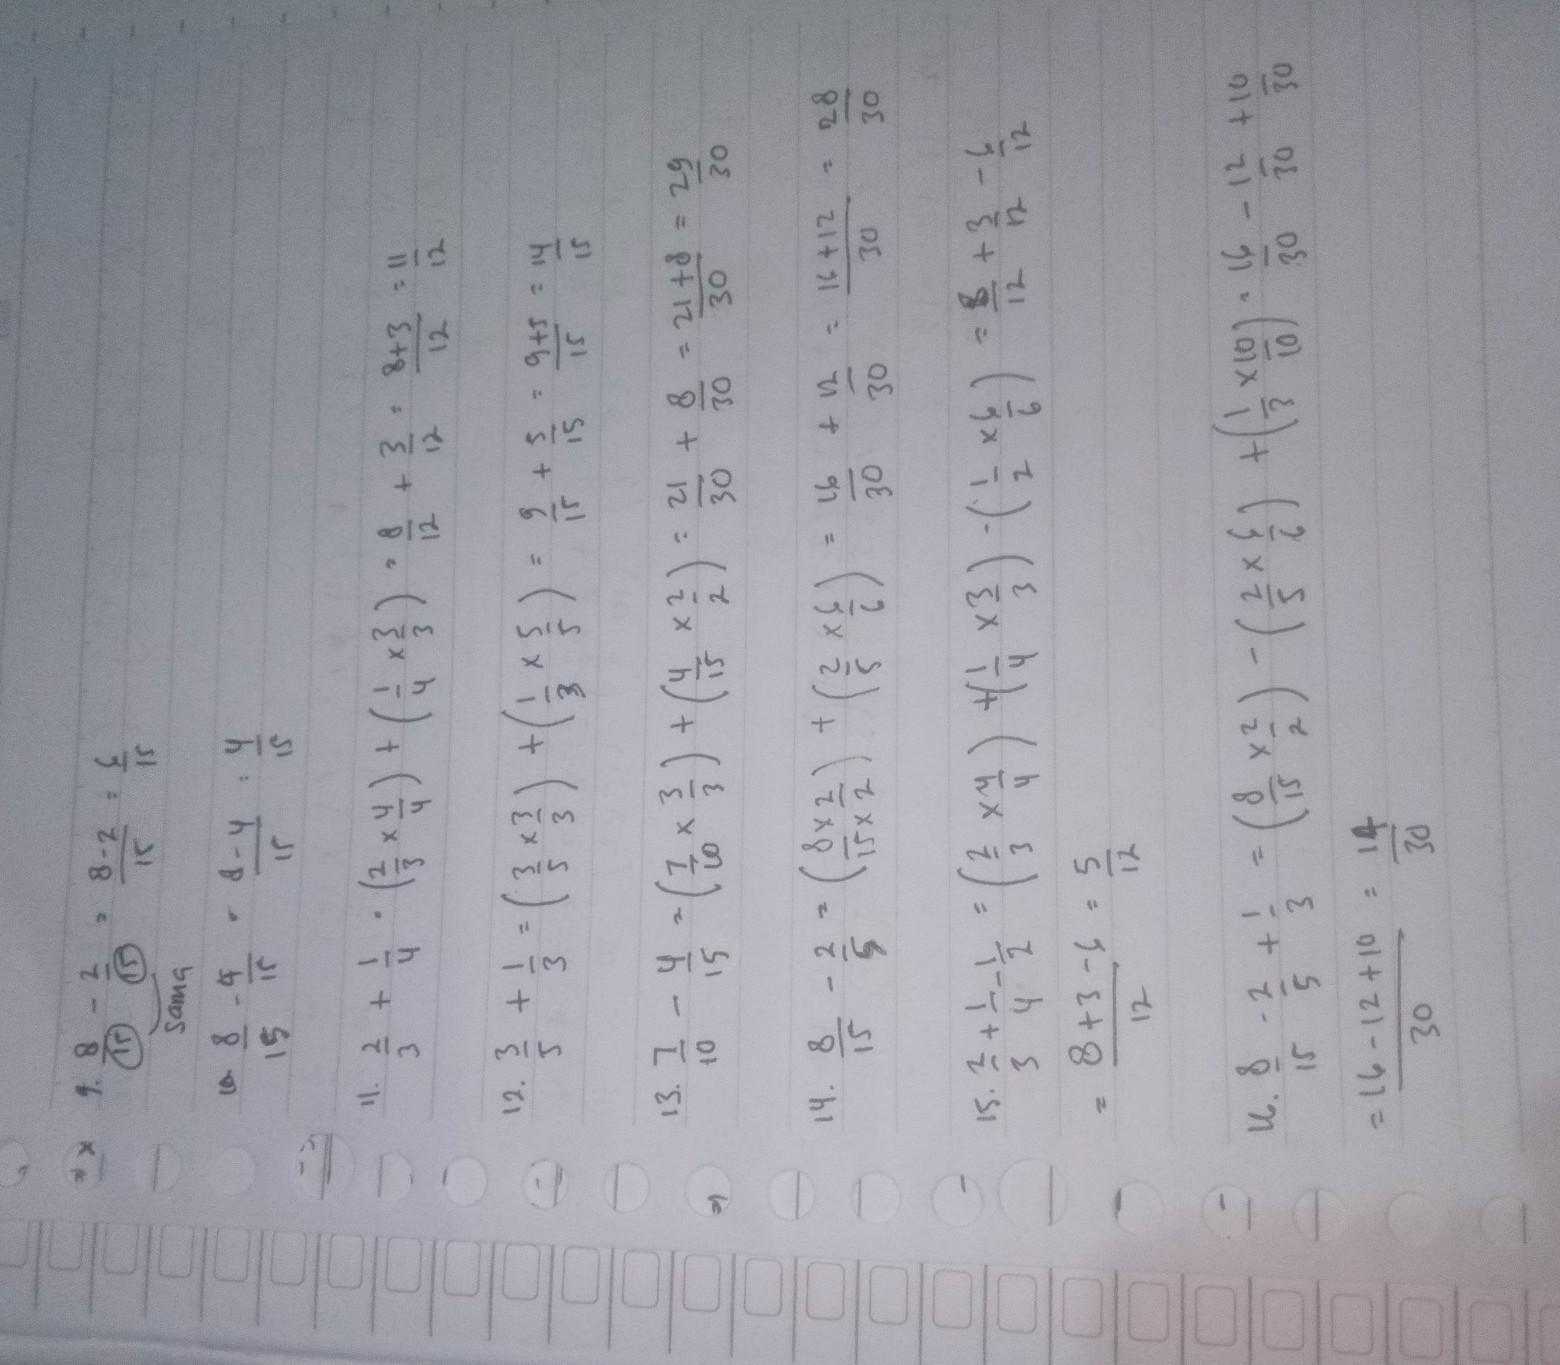 9. 8/15 - 2/15 = 8-2/15 = 6/15
Sama
10. 8/15 - 4/15 = 8-4/15 = 4/15
11. 2/3 + 1/4 = (2/3 x 4/4) + (1/4 x 3/3) = 8/12 + 3/12 = 8+3/12 = 11/12
12. 3/5 + 1/3 = (3/5 x 3/3) + (1/3 x 5/5) = 9/15 + 5/15 = 9+5/15 = 14/15
13. 7/10 - 4/15 = (7/10 x 3/3) + (4/15 x 2/2) = 21/30 + 8/30 = 21+8/30 = 29/30
14. 8/15 - 2/5 = (8x2/15x2) + (2/5 x 6/6) = 16/30 + 12/30 = 16+12/30 = 28/30
15. 2/3 + 1/4 - 1/2 = (2/3 x 4/4) + (1/4 x 3/3) - (1/2 x 6/6) = 8/12 + 3/12 - 6/12
= 8+3-6/12 = 5/12
16. 8/15 - 2/5 + 1/3 = (8/15 x 2/2) - (2/5 x 6/6) + (1/3 x 10/10) = 16/30 - 12/30 + 10/30
= 16-12+10/30 = 14/30